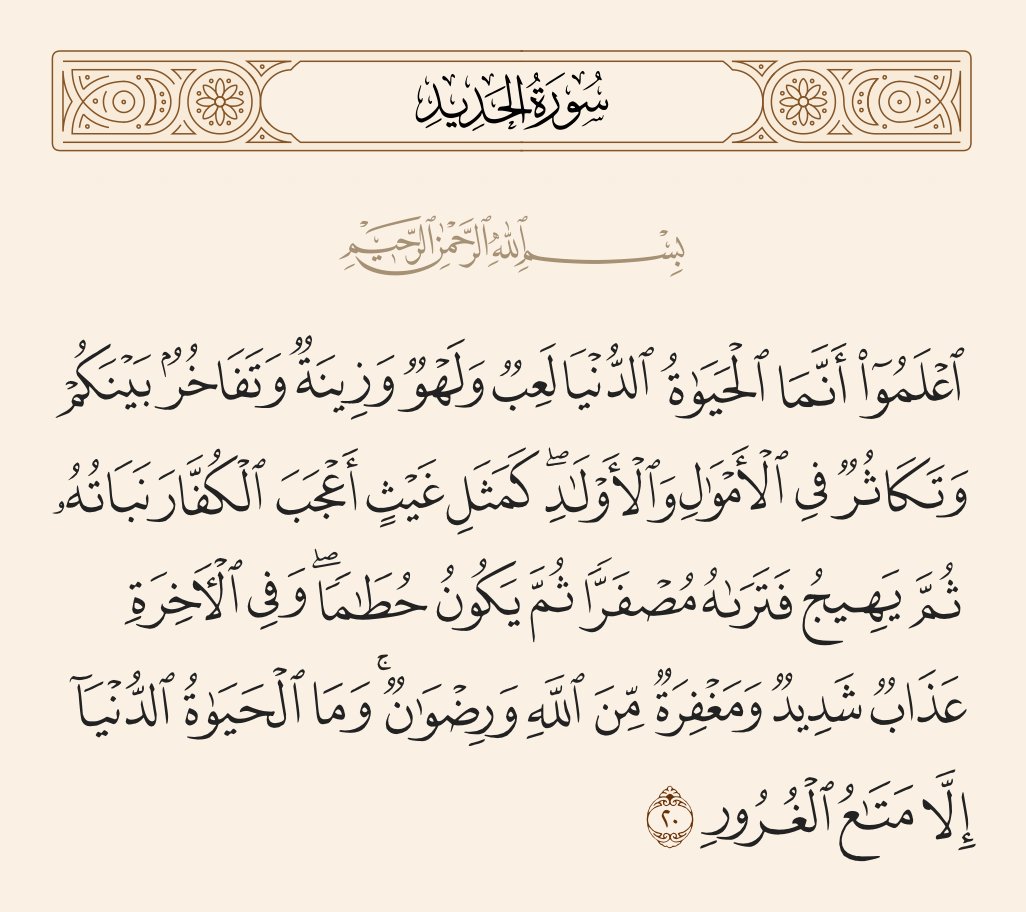 سُورَةُ الحَدِيدِ
بِسْمِ ٱللَّهِ ٱلرَّحْمَٰنِ ٱلرَّحِيمِ
ٱعْلَمُوٓا۟ أَنَّمَا ٱلْحَيَوٰةُ ٱلدُّنْيَا لَعِبٌ وَلَهْوٌ وَزِينَةٌ وَتَفَاخُرٌۢ بَيْنَكُمْ
وَتَكَاثُرٌ فِى ٱلْأَمْوَٰلِ وَٱلْأَوْلَٰدِ ۖ كَمَثَلِ غَيْثٍ أَعْجَبَ ٱلْكُفَّارَ نَبَاتُهُۥ
ثُمَّ يَهِيجُ فَتَرَىٰهُ مُصْفَرًّا ثُمَّ يَكُونُ حُطَٰمًا ۖ وَفِى ٱلْءَاخِرَةِ
عَذَابٌ شَدِيدٌ وَمَغْفِرَةٌ مِّنَ ٱللَّهِ وَرِضْوَٰنٌ ۚ وَمَا ٱلْحَيَوٰةُ ٱلدُّنْيَآ
إِلَّا مَتَٰعُ ٱلْغُرُورِ ٢٠